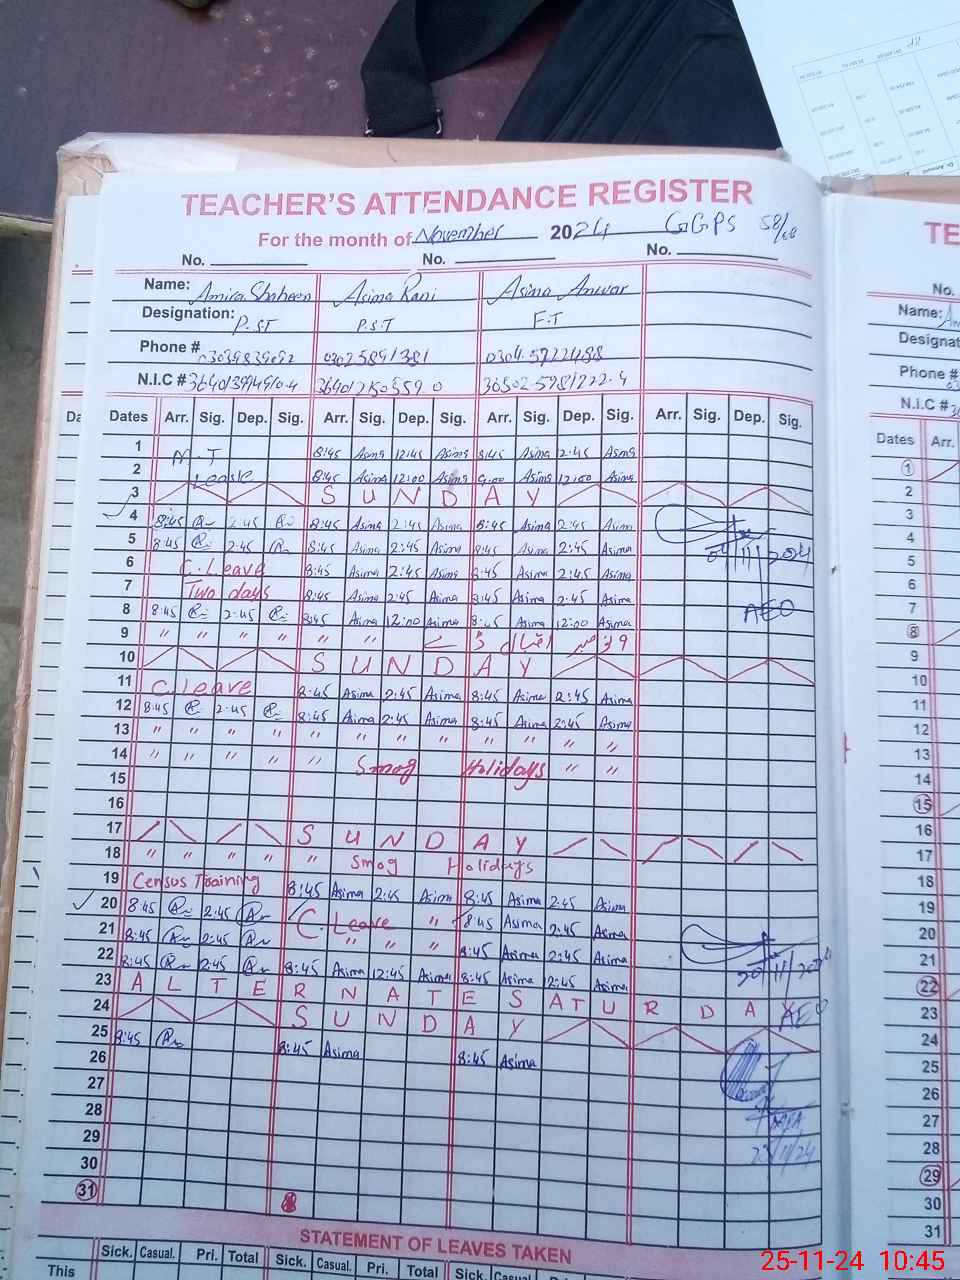 TEACHER'S ATTENDANCE REGISTER
For the month of November 2024 GGPS 58/
No. No. No.
Name: Amira Shaheen Asima Rani Asima Anwar
Designation: P.ST P.S.T F.T
Phone # 03025891381 0304.5722488
N.I.C #
Dates Arr. Sig. Dep. Sig. Arr. Sig. Dep. Sig. Arr. Sig. Dep. Sig. Arr. Sig. Dep. Sig.
1 8:45 Asima 12:45 Asima 8:45 Asima 2:45 Asima
2 Leave 8:45 Asima 12:00 Asima 9:00 Asima 12:00 Asima
3 S U N D A Y
4 8:45 2:45 8:45 Asima 2:45 Asima 8:45 Asima 2:45 Asima
5 8:45 2:45 8:45 Asima 2:45 Asima 8:45 Asima 2:45 Asima
6 C.Leave 8:45 Asima 2:45 Asima 8:45 Asima 2:45 Asima
7 Two days 8:45 Asima 2:45 Asima 8:45 Asima 2:45 Asima
8 8:45 2:45 8:45 Asima 12:00 Asima 8:45 Asima 12:00 Asima
AEO
9 " " " " " " 9 نومبر اقبال ڈے
10 S U N D A Y
11 C.Leave 8:45 Asima 2:45 Asima 8:45 Asima 2:45 Asima
12 8:45 2:45 8:45 Asima 2:45 Asima 8:45 Asima 2:45 Asima
13 " " " " " " " " " " " "
14 " " " " " Smog Holidays " "
15
16
17 S U N D A Y
18 " " " " " Smog Holidays
19 Census Training 8:45 Asima 2:45 Asima 8:45 Asima 2:45 Asima
20 8:45 2:45 C. Leave " 8:45 Asima 2:45 Asima
21 8:45 2:45 " " " 8:45 Asima 2:45 Asima
22 8:45 2:45 8:45 Asima 12:45 Asima 8:45 Asima 2:45 Asima
23 A L T E R N A T E S A T U R D A Y
AEO
24 S U N D A Y
25 8:45 8:45 Asima 8:45 Asima
26
27
28
29
30
31
STATEMENT OF LEAVES TAKEN
Sick. Casual. Pri. Total Sick. Casual. Pri. Total Sick. Casual. Pri.
This
TE
No.
Name:
Designat
Phone #
N.I.C #
Dates Arr.
1
2
3
4
5
6
7
8
9
10
11
12
13
14
15
16
17
18
19
20
21
22
23
24
25
26
27
28
29
30
31
25-11-24 10:45